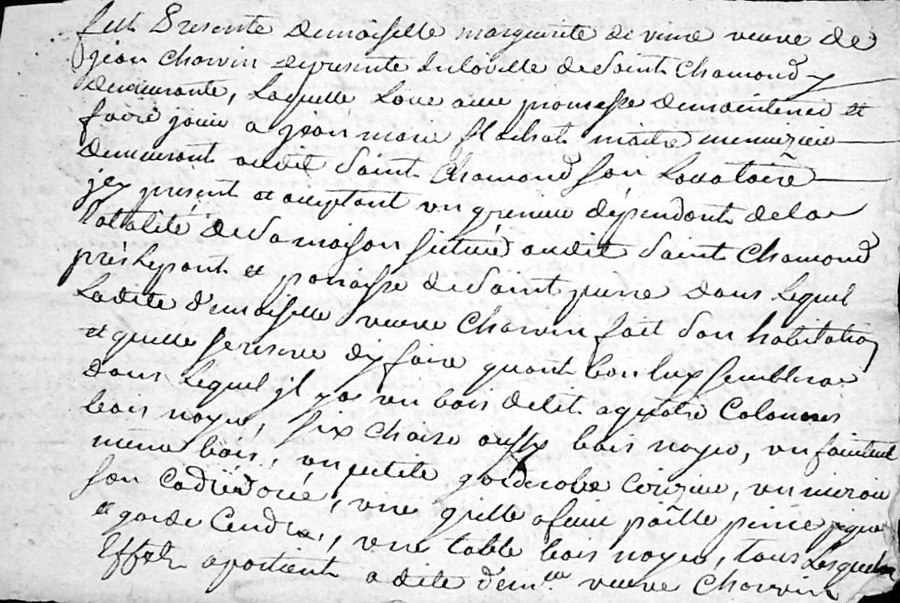 fut Presente demoiselle marguerite de vine veuve de
jean Chorvin de presente en la ville de Saint Chamond y
demeurante, Laquelle Loue avec promesse de maintenir et
faire jouir a jean marie flachat maitre menuzier
demeurant audit Saint Chamond son Locataire
jcy present et acceptant un grenier dépendant de la
totalité de Sa maison scitué audit Saint Chamond
prés Lepont et paroisse de Saint pierre dans Lequel
Ladite d'emoiselle veuve Chorvin fait Son habitation
et quelle se reserve dy faire quant bon luy semblera
dans Lequel jl y a un bois de lit a quatre Colonnes
bois noyer, six chaise aussy bois noyer, un fauteuil
même bois, un petite garderobe Cerizier, un miroir
son Cadre doré, une grille a feu paille pince
et garde Cendre, une table bois noyer, tous Lesquels
Effets apartient a dite d'em.lle veuve Chorvin